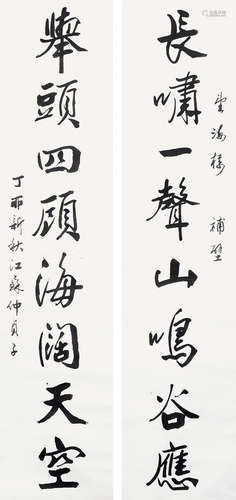 長嘯一聲山鳴谷應
望海樓 補壁
舉頭四顧海闊天空
丁耶新秋江蘇仲貞子